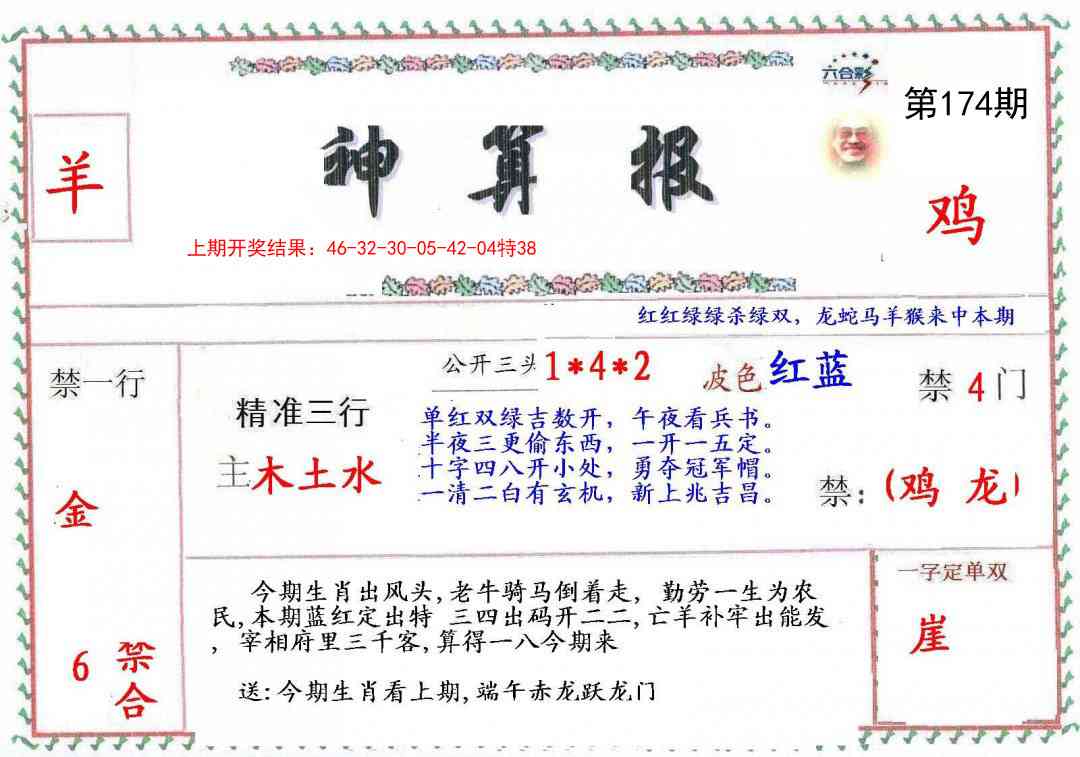 六合彩
第174期
羊
神算报
鸡
上期开奖结果：46-32-30-05-42-04特38
红红绿绿杀绿双，龙蛇马羊猴来中本期
禁一行
公开三头 1*4*2
波色 红蓝
禁 4 门
精准三行
单红双绿吉数开，午夜看兵书。
半夜三更偷东西，一开一五定。
主木土水
十字四八开小处，勇夺冠军帽。
一清二白有玄机，新上兆吉昌。
禁：(鸡 龙)
金
一字定单双
今期生肖出风头,老牛骑马倒着走, 勤劳一生为农
民,本期蓝红定出特 三四出码开二二,亡羊补牢出能发
, 宰相府里三千客,算得一八今期来
崖
6 禁合
送:今期生肖看上期,端午赤龙跃龙门